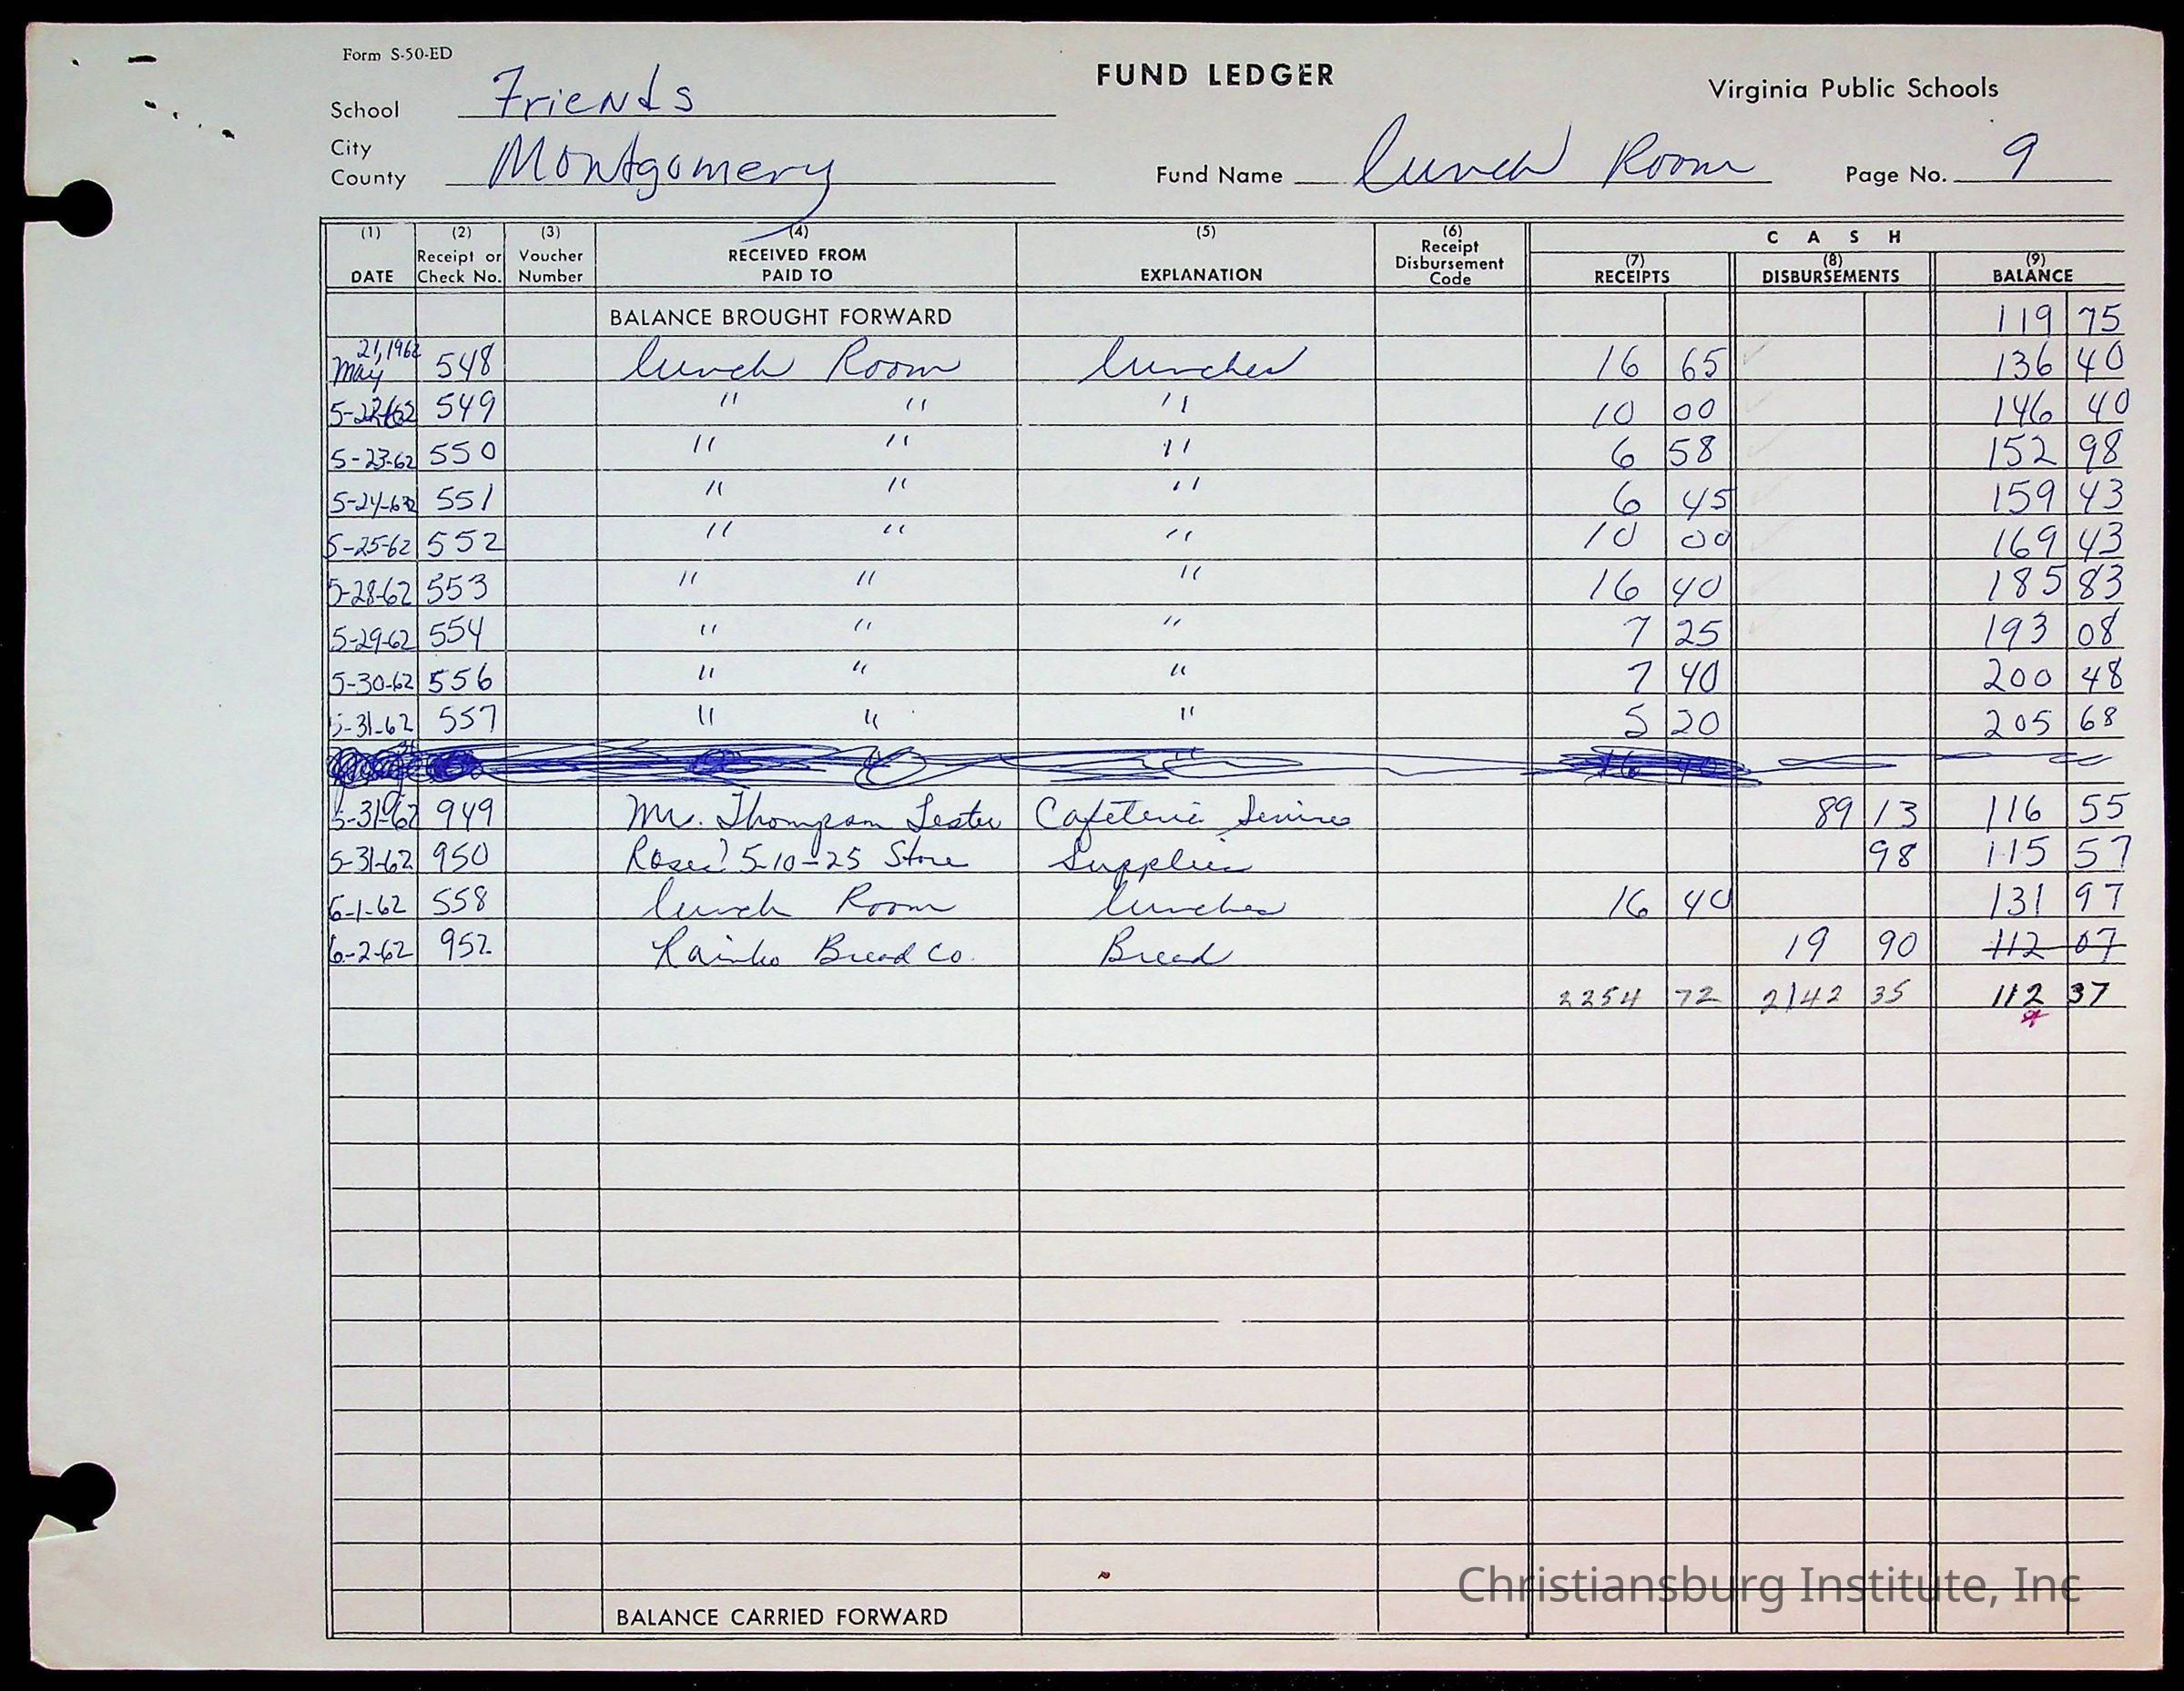 Form S-50-ED
FUND LEDGER
Virginia Public Schools
School Friends
City
County Montgomery
Fund Name Lunch Room
Page No. 9
(1) DATE (2) Receipt or Check No. (3) Voucher Number (4) RECEIVED FROM PAID TO (5) EXPLANATION (6) Receipt Disbursement Code CASH (7) RECEIPTS (8) DISBURSEMENTS (9) BALANCE
BALANCE BROUGHT FORWARD 119 75
May 21, 1962 548 Lunch Room Lunches 16 65 136 40
5-22-62 549 " " " 10 00 146 40
5-23-62 550 " " " 6 58 152 98
5-24-62 551 " " " 6 45 159 43
5-25-62 552 " " " 10 00 169 43
5-28-62 553 " " " 16 40 185 83
5-29-62 554 " " " 7 25 193 08
5-30-62 556 " " " 7 40 200 48
5-31-62 557 " " " 5 20 205 68
5-31-62 949 Mr. Thompson Lester Cafeteria Services 89 13 116 55
5-31-62 950 Roses' 5-10-25 Store Supplies 98 115 57
6-1-62 558 Lunch Room Lunches 16 40 131 97
6-2-62 952 Rainbo Bread Co. Bread 19 90 112 07
2254 72 2142 35 112 37
BALANCE CARRIED FORWARD
Christiansburg Institute, Inc